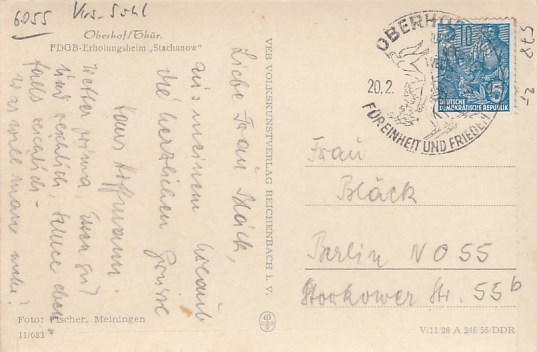 6055 Krs. Suhl
Oberhof/Thür.
FDGB-Erholungsheim „Stachanow"
Liebe Frau Bläck,
aus meinem Urlaub
die herzlichsten Grüsse
Hans Hoffmann.
Wetter prima, Essen gut
und reichlich, Schnee eben-
falls reichlich -
was will man mehr!
Foto: Fischer, Meiningen
11/683
VEB VOLKSKUNSTVERLAG REICHENBACH I. V.
OBERHOF
20.2.
FÜR EINHEIT UND FRIEDEN
10
DEUTSCHE
DEMOKRATISCHE REPUBLIK
Frau
Bläck
Berlin NO 55
Stookower Str. 55b
V/11/28 A 246 55/DDR